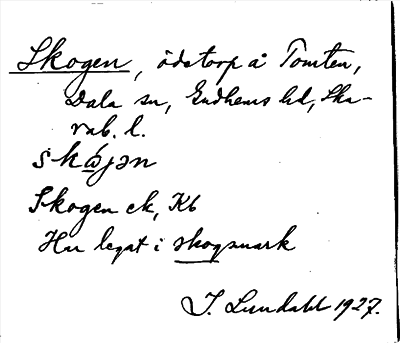 Skogen, ödetorp å Tomten,
Dala sn, Gudhems hd, Ska-
rab. l.
skǫ́jən
Skogen ek, Kb
Har legat i skogsmark
I. Lundahl 1927.